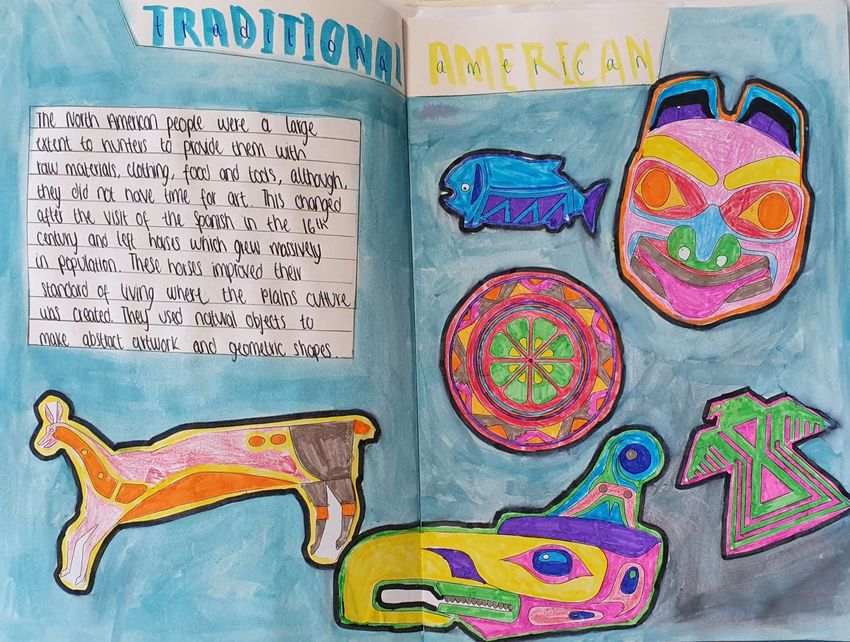 TRADITIONAL
traditional
AMERICAN
american
The North American people were a large
extent to hunters to provide them with
raw materials, clothing, food and tools, although,
they did not have time for art. This changed
after the visit of the Spanish in the 16th
century and left horses which grew massively
in population. These horses improved their
standard of living where the Plains Culture
was created. They used natural objects to
make abstract artwork and geometric shapes.